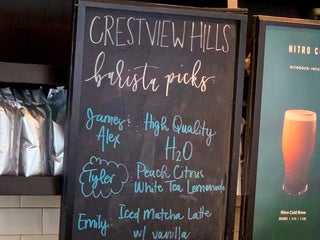 CRESTVIEW HILLS
barista picks:
James: High Quality
Alex H2O
Tyler: Peach Citrus
White Tea Lemonade
Emily: Iced Matcha Latte
w/ vanilla
NITRO C
NITROGEN-INFU
Nitro Cold Brew